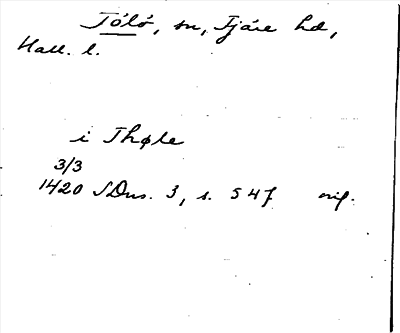 Tölö, sn, Fjäre hd,
Hall. l.
i Thøle
3/3
1420 SDns. 3, s. 547 orig.